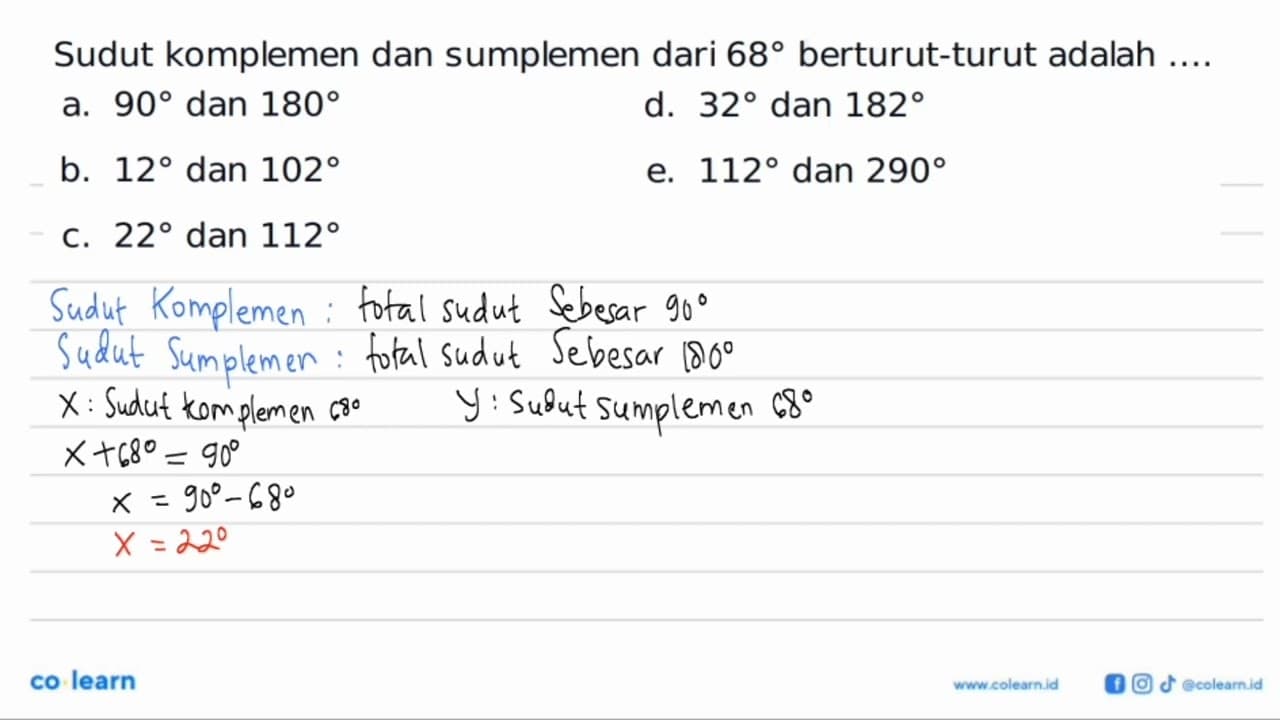 Sudut komplemen dan sumplemen dari 68° berturut-turut adalah ....
a. 90° dan 180°
d. 32° dan 182°
b. 12° dan 102°
e. 112° dan 290°
c. 22° dan 112°
Sudut Komplemen : total sudut Sebesar 90°
Sudut Sumplemen : total sudut Sebesar 180°
X : Sudut komplemen 68°
Y : Sudut sumplemen 68°
X + 68° = 90°
x = 90° - 68°
X = 22°
co learn
www.colearn.id
@colearn.id